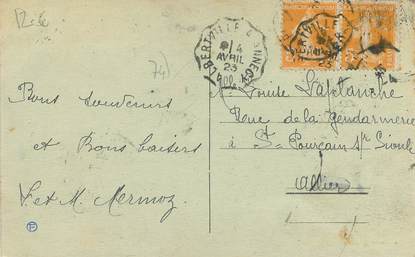 74)
ALBERTVILLE A ANNECY
9/4
AVRIL
23
Bons souvenirs
et Bons baisers
F. et M. Mermoz
Louise Laplanche
Rue de la Gendarmerie
à St Pourçain s/r Sioule
Allier